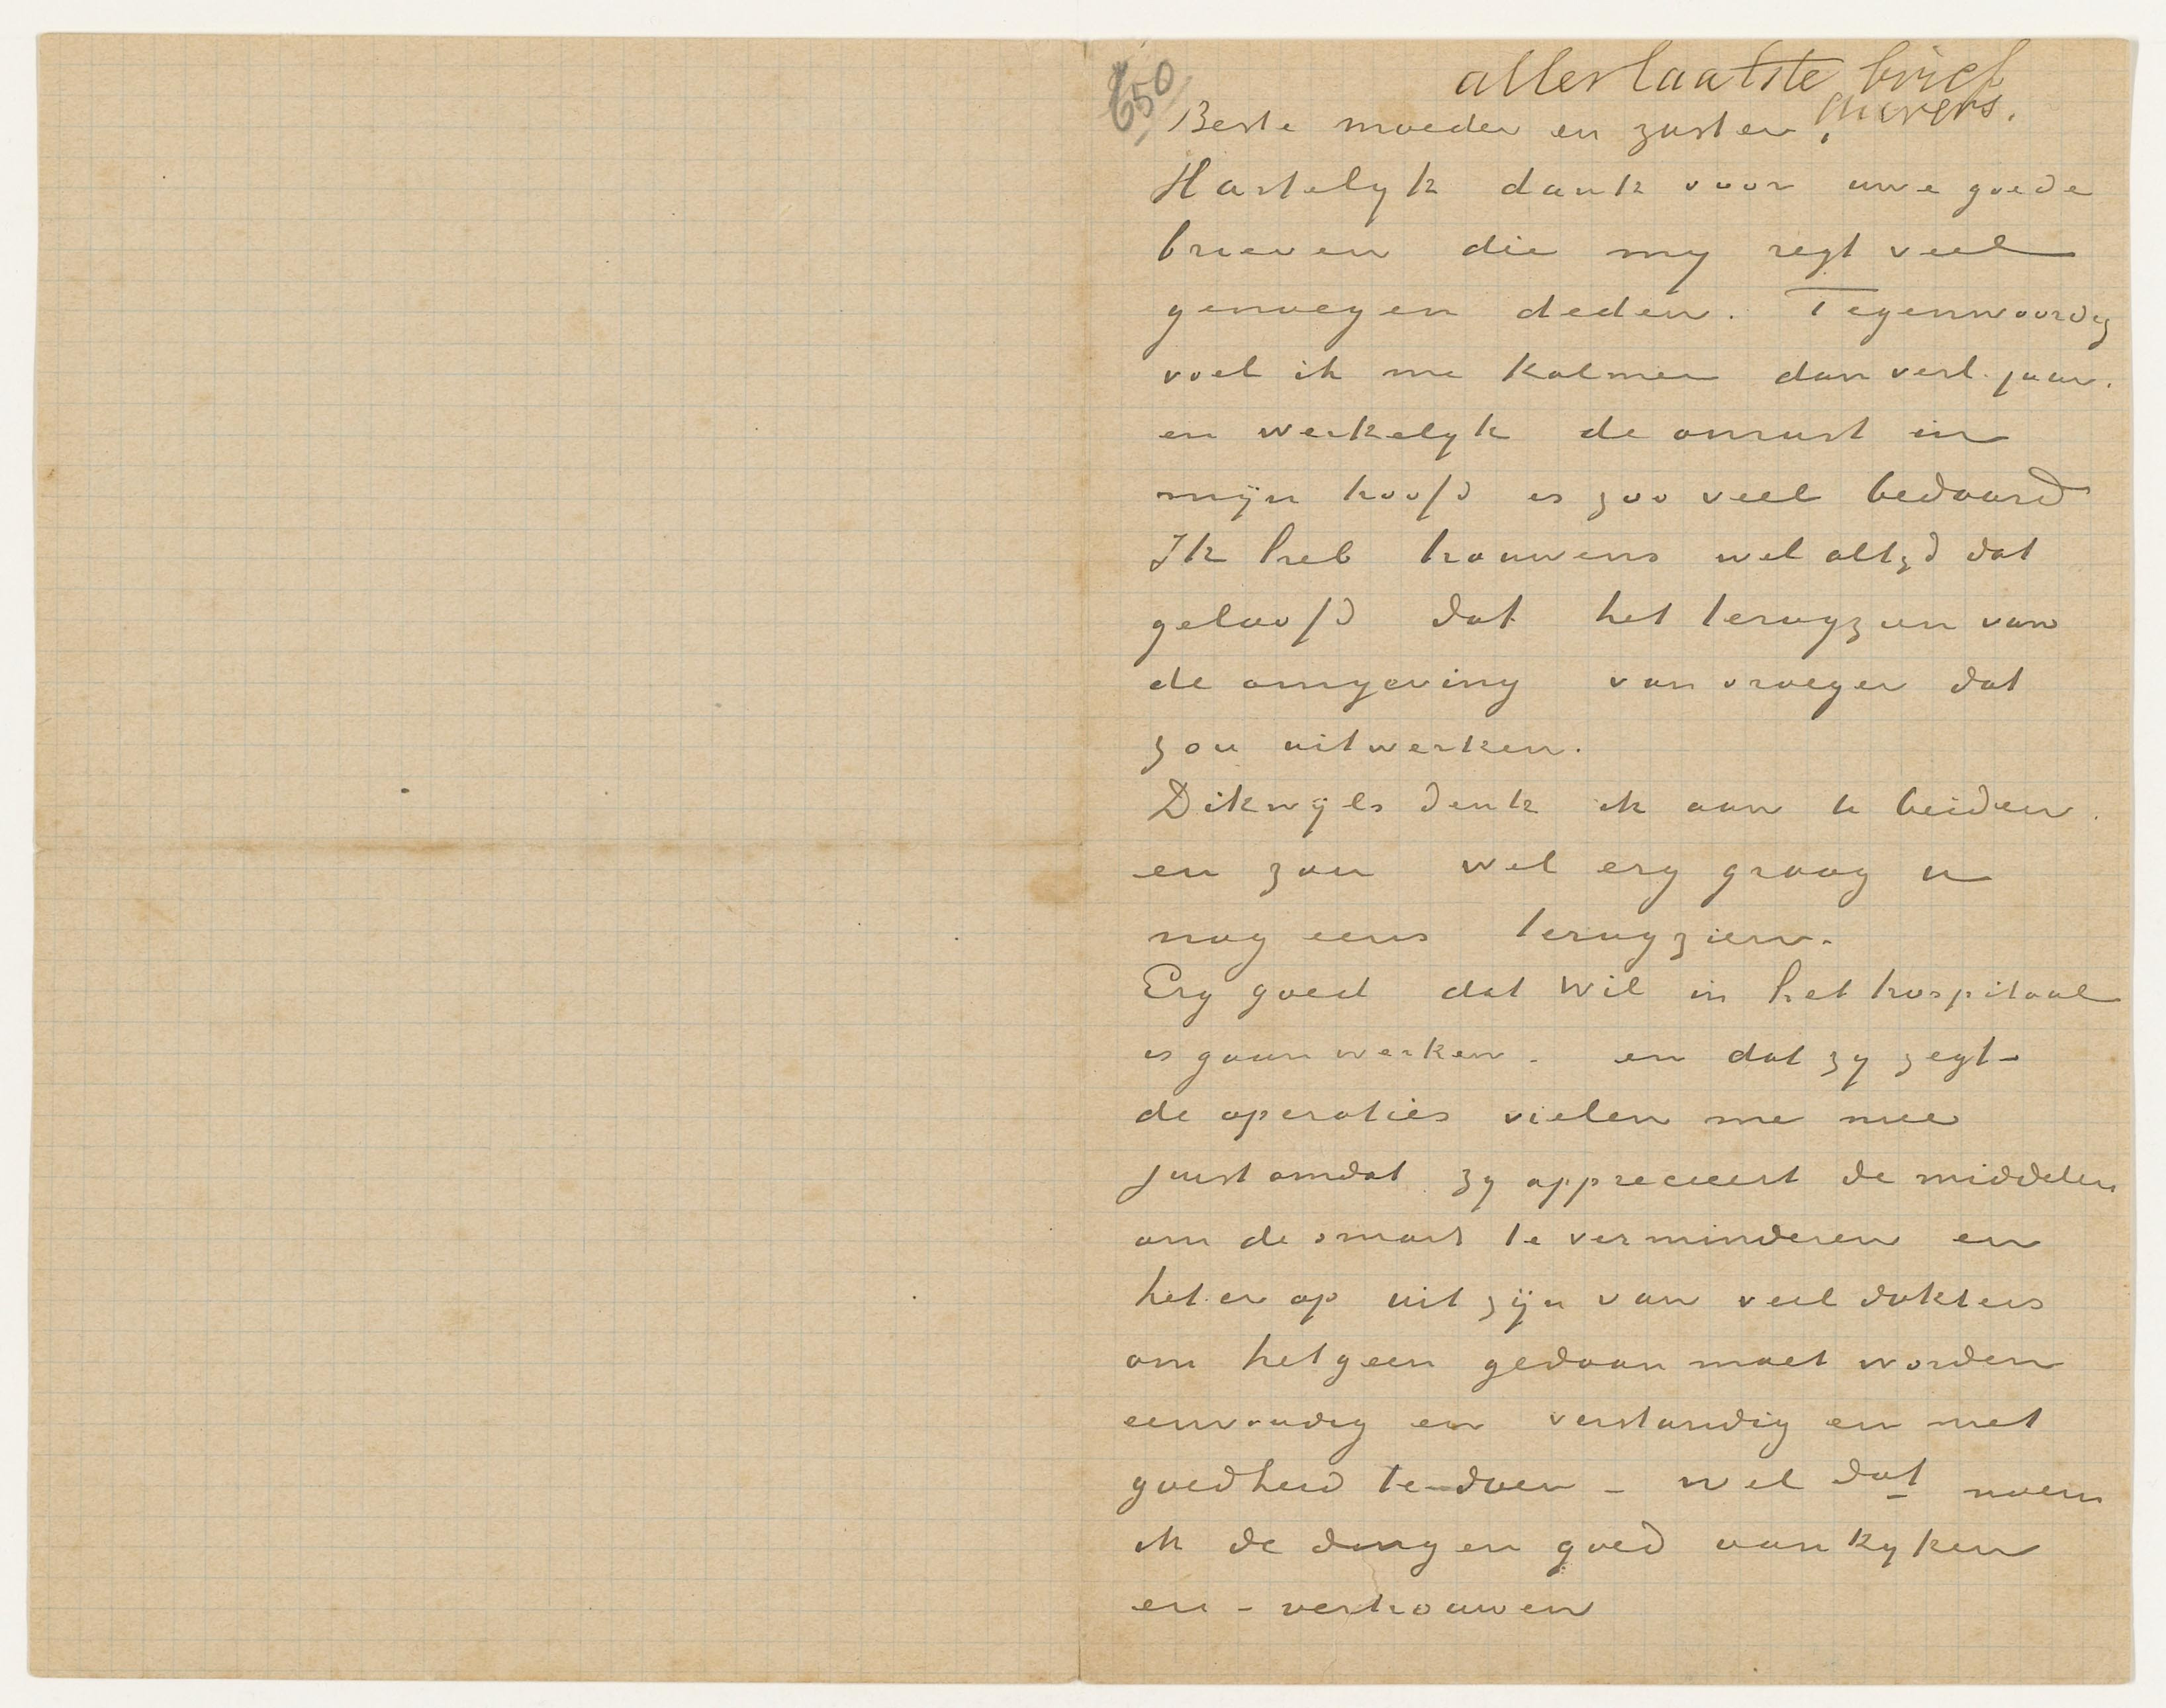 650
allerlaatste brief
Auvers.
Beste moeder en zuster,
Hartelyk dank voor uwe goede
brieven die my regt veel
genoegen deden. Tegenwoordig
voel ik me kalmer dan verl. jaar.
en werkelyk de onrust in
mijn hoofd is zoo veel bedaard
Ik heb trouwens wel altyd dat
geloofd dat het terugzien van
de omgeving van vroeger dat
zou uitwerken.
Dikwijls denk ik aan u beiden.
en zou wel erg graag u
nog eens terugzien.
Erg goed dat Wil in het hospitaal
is gaan werken – en dat zy zegt –
de operaties vielen me mee
juist omdat zy apprecieert de middelen
om de smart te verminderen en
het er op uit zijn van veel dokters
om hetgeen gedaan moet worden
eenvoudig en verstandig en met
goedheid te doen – wel dat noem
ik de dingen goed aankyken
en – vertrouwen